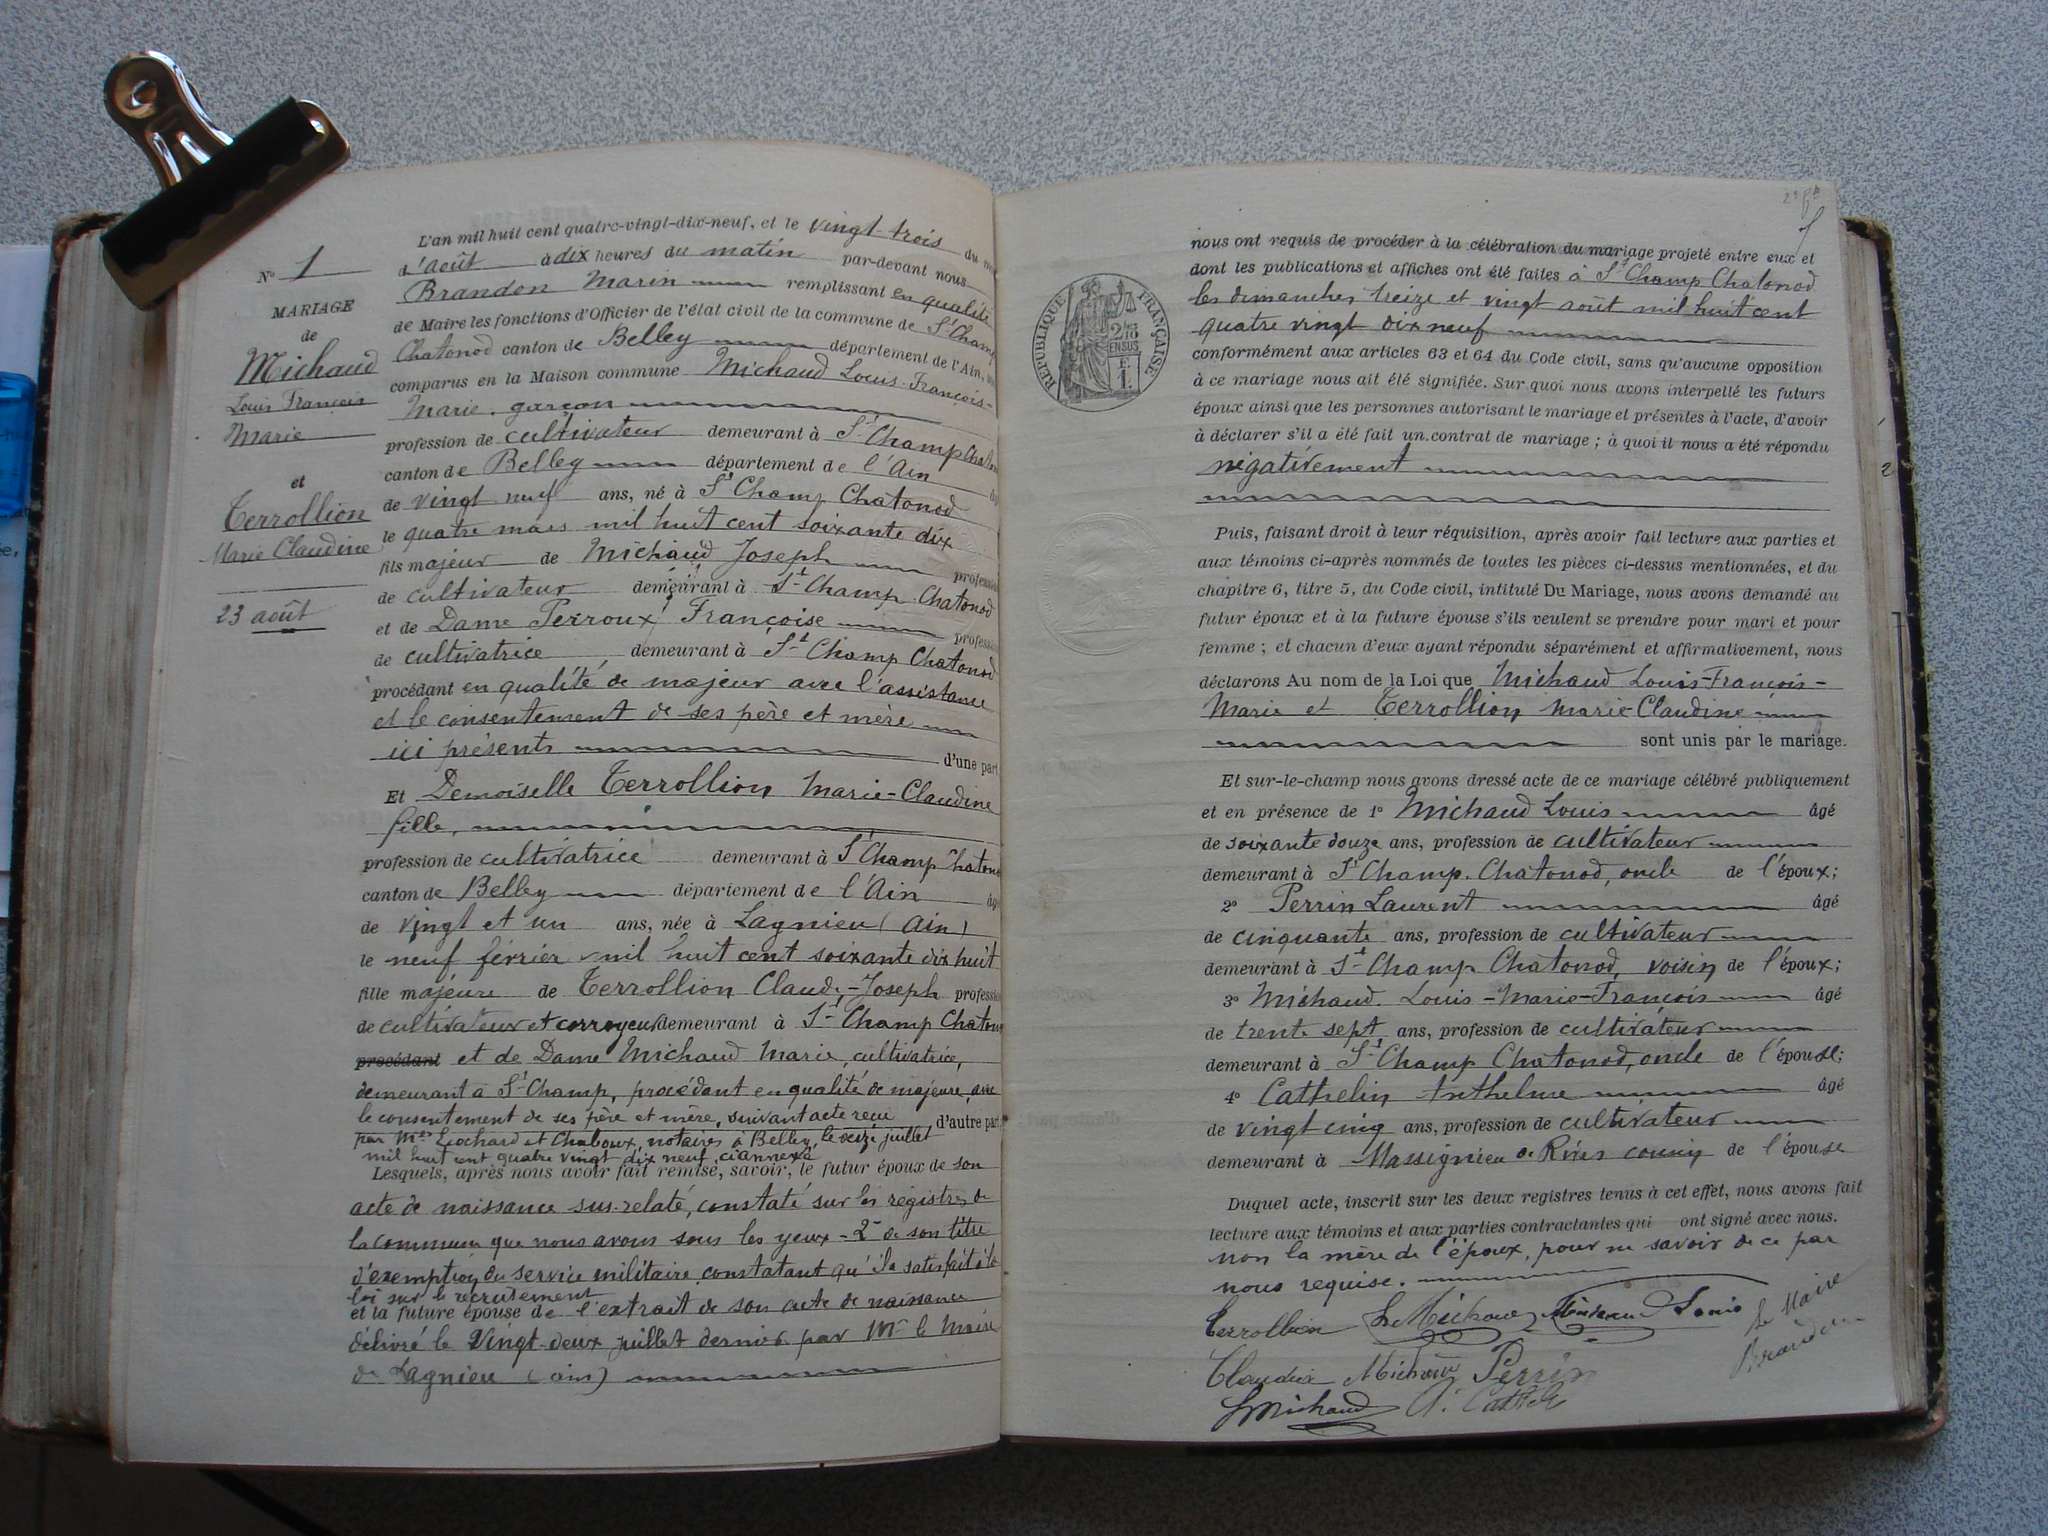 N° 1
MARIAGE
de
Michaud
Louis François
Marie
et
Terrollion
Marie Claudine
23 août
L'an mil huit cent quatre-vingt-dix-neuf, et le vingt trois du
d'août à dix heures du matin par-devant nous
Brandon Marin remplissant en qualité
de Maire les fonctions d'Officier de l'état civil de la commune de St Champ
Chatonod canton de Belley département de l'Ain,
comparus en la Maison commune Michaud Louis-François-
Marie, garçon
profession de cultivateur demeurant à St Champ Chaton
canton de Belley département de l'Ain
de vingt neuf ans, né à St Champ Chatonod
le quatre mars mil huit cent soixante dix
fils majeur de Michaud Joseph profession
de cultivateur demeurant à St Champ Chatonod
et de Dame Perroux Françoise profession
de cultivatrice demeurant à St Champ Chatonod
procédant en qualité de majeur avec l'assistance
et le consentement de ses père et mère
ici présents d'une part
Et Demoiselle Terrollion Marie-Claudine
fille,
profession de cultivatrice demeurant à St Champ Chaton
canton de Belley département de l'Ain âg
de vingt et un ans, née à Lagnieu (Ain)
le neuf février mil huit cent soixante dix huit
fille majeure de Terrollion Claude-Joseph profession
de cultivateur et corroyeur demeurant à St Champ Chaton
procédant et de Dame Michaud Marie, cultivatrice,
demeurant à St Champ, procédant en qualité de majeure, avec
le consentement de ses père et mère, suivant acte reçu d'autre part
par Mes Lochard et Chaboux, notaires à Belley, le seize juillet
mil huit cent quatre vingt dix neuf, ci annexé
Lesquels, après nous avoir fait remise, savoir, le futur époux de son
acte de naissance sus-relaté, constaté sur les registres de
la commune que nous avons sous les yeux - 2° de son titre
d'exemption du service militaire constatant qu'il a satisfait à la
loi sur le recrutement
et la future épouse de l'extrait de son acte de naissance
délivré le vingt-deux juillet dernier par Mr le Maire
de Lagnieu (ain)
nous ont requis de procéder à la célébration du mariage projeté entre eux et
dont les publications et affiches ont été faites à St Champ Chatonod
les dimanches treize et vingt août mil huit cent
quatre vingt dix neuf
conformément aux articles 63 et 64 du Code civil, sans qu'aucune opposition
à ce mariage nous ait été signifiée. Sur quoi nous avons interpellé les futurs
époux ainsi que les personnes autorisant le mariage et présentes à l'acte, d'avoir
à déclarer s'il a été fait un contrat de mariage ; à quoi il nous a été répondu
négativement
RÉPUBLIQUE FRANÇAISE
2/10
EN SUS
F.
1.
Puis, faisant droit à leur réquisition, après avoir fait lecture aux parties et
aux témoins ci-après nommés de toutes les pièces ci-dessus mentionnées, et du
chapitre 6, titre 5, du Code civil, intitulé Du Mariage, nous avons demandé au
futur époux et à la future épouse s'ils veulent se prendre pour mari et pour
femme ; et chacun d'eux ayant répondu séparément et affirmativement, nous
déclarons Au nom de la Loi que Michaud Louis-François-
Marie et Terrollion Marie-Claudine
sont unis par le mariage.
Et sur-le-champ nous avons dressé acte de ce mariage célébré publiquement
et en présence de 1° Michaud Louis âgé
de soixante douze ans, profession de cultivateur
demeurant à St Champ-Chatonod, oncle de l'époux;
2° Perrin Laurent âgé
de cinquante ans, profession de cultivateur
demeurant à St Champ Chatonod, voisin de l'époux;
3° Michaud Louis-Marie-François âgé
de trente sept ans, profession de cultivateur
demeurant à St Champ Chatonod, oncle de l'épouse;
4° Cathelin Anthelme âgé
de vingt cinq ans, profession de cultivateur
demeurant à Massignieu de Rives cousin de l'épouse
Duquel acte, inscrit sur les deux registres tenus à cet effet, nous avons fait
lecture aux témoins et aux parties contractantes qui ont signé avec nous.
non la mère de l'époux, pour ne savoir de ce par
nous requise.
Terrollion L Michaud Michaud Louis Le Maire
Brandon
Claudix Michaud Perrin
L Michaud A. Cathelin